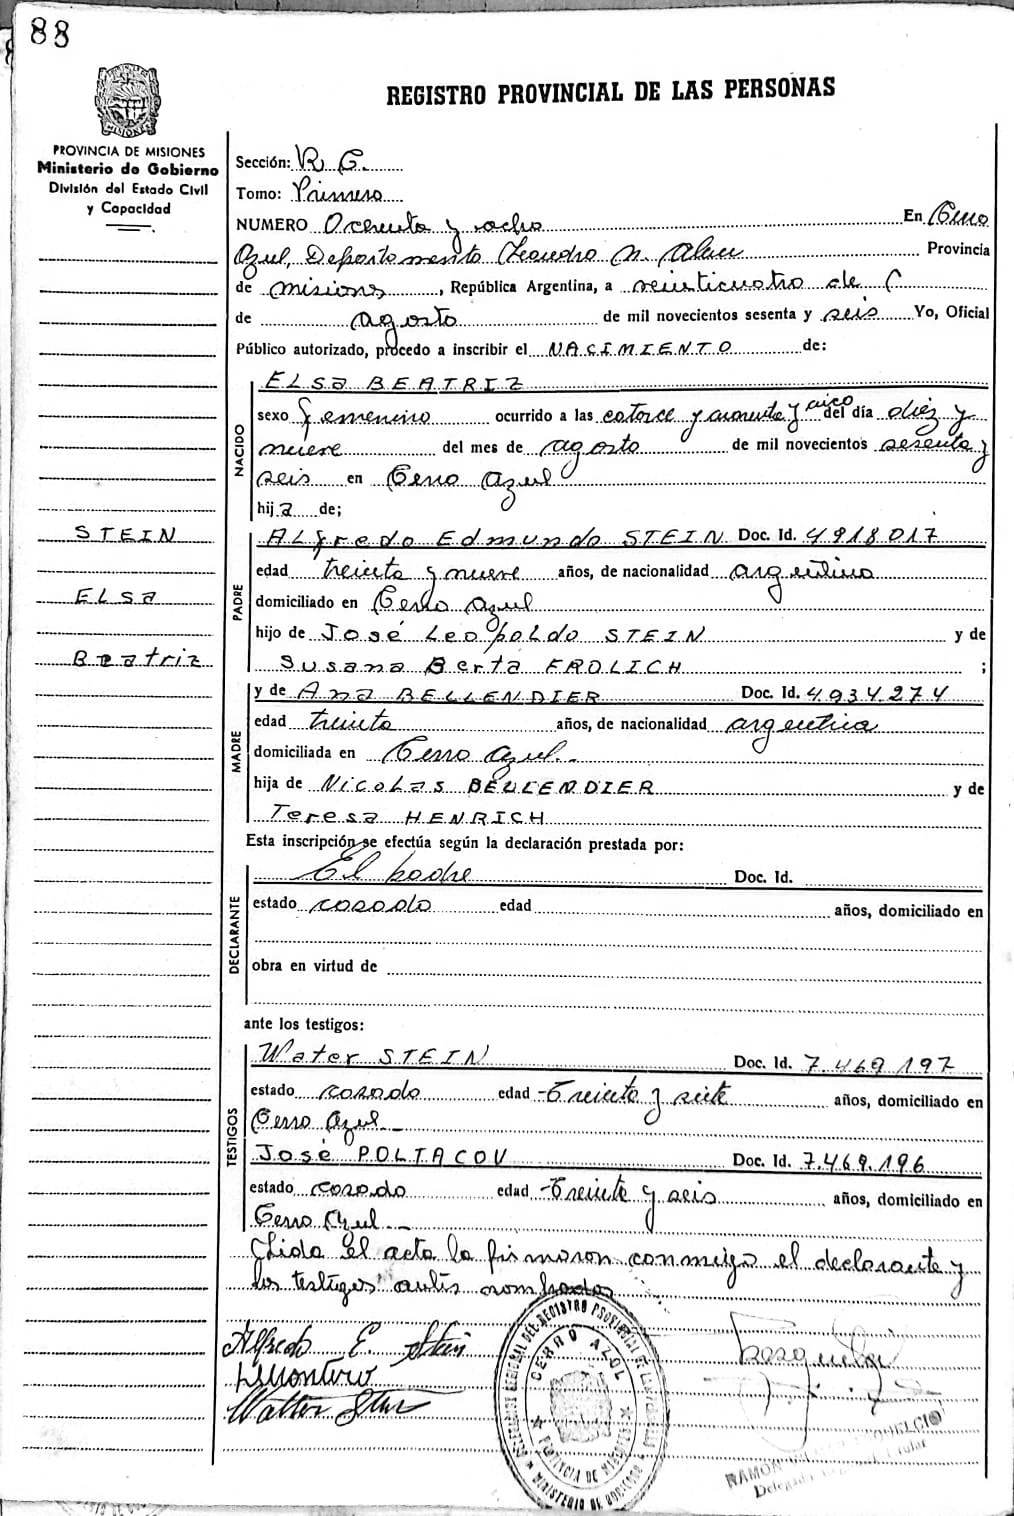 88
PROVINCIA DE MISIONES
Ministerio de Gobierno
División del Estado Civil
y Capacidad
STEIN
ELSA
Beatriz
REGISTRO PROVINCIAL DE LAS PERSONAS
Sección: R. C.
Tomo: Primero
NUMERO Ochenta y ocho En Cerro
Azul, Departamento Leandro N. Alem Provincia
de misiones, República Argentina, a veinticuatro de
de agosto de mil novecientos sesenta y seis Yo, Oficial
Público autorizado, procedo a inscribir el NACIMIENTO de:
NACIDO
ELSA BEATRIZ
sexo femenino ocurrido a las catorce y cuarenta y cinco del día diez y
nueve del mes de agosto de mil novecientos sesenta y
seis en Cerro Azul
hija de;
PADRE
ALfredo Edmundo STEIN Doc. Id. 4918017
edad treinta y nueve años, de nacionalidad argentino
domiciliado en Cerro Azul
hijo de José Leopoldo STEIN y de
Susana Berta FROLICH ;
MADRE
y de Ana BELLENDIER Doc. Id. 4.934.274
edad treinta años, de nacionalidad argentina
domiciliada en Cerro Azul.-
hija de Nicolas BELLENDIER y de
Teresa HENRICH
Esta inscripción se efectúa según la declaración prestada por:
DECLARANTE
El padre Doc. Id.
estado casado edad años, domiciliado en
obra en virtud de
ante los testigos:
TESTIGOS
Water STEIN Doc. Id. 7.469.197
estado casado edad treinta y siete años, domiciliado en
Cerro Azul.-
José POLTACOV Doc. Id. 7.469.196
estado casado edad treinta y seis años, domiciliado en
Cerro Azul.-
Lida el acta la firmaron conmigo el declarante y
los testigos antes nombrados
Alfredo E. Stein
Walter Stein
CERRO AZUL
PROVINCIA DE MISIONES
MINISTERIO DE GOBIERNO
RAMON